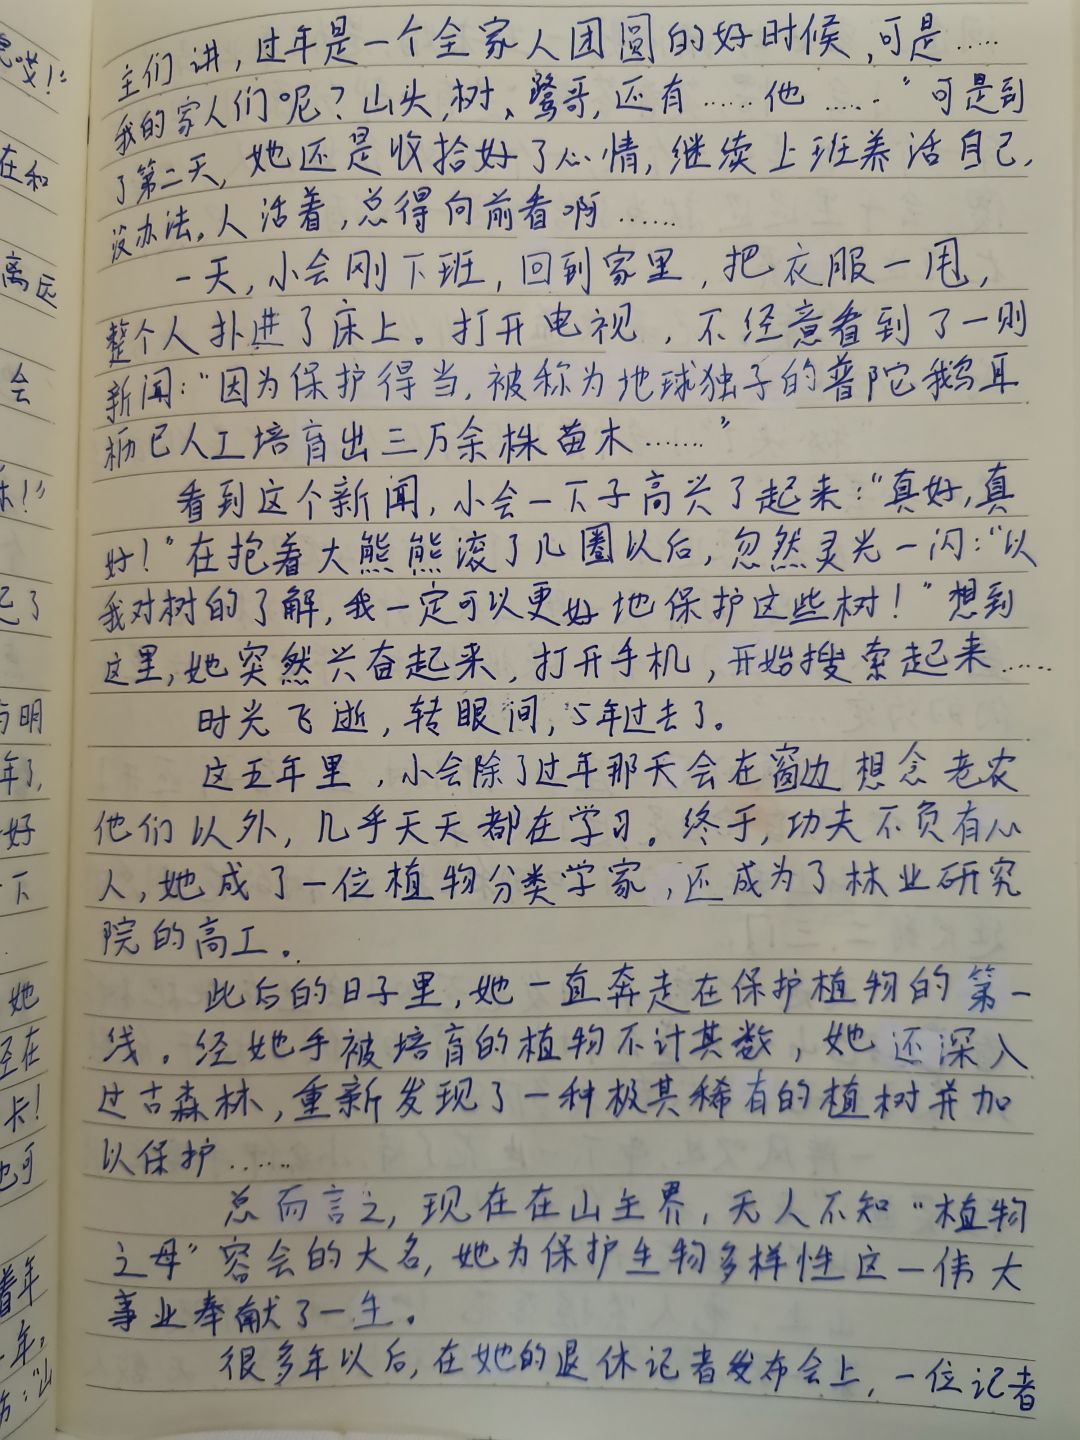 主们讲，过年是一个全家人团圆的好时候，可是……
我的家人们呢？山头，树、鹭哥，还有……他……”可是到
了第二天，她还是收拾好了心情，继续上班养活自己，
没办法，人活着，总得向前看啊……
一天，小会刚下班，回到家里，把衣服一甩，
整个人扑进了床上。打开电视，不经意看到了一则
新闻：“因为保护得当，被称为地球独子的普陀鹅耳
枥已人工培育出三万余株苗木……”
看到这个新闻，小会一下子高兴了起来：“真好，真
好！”在抱着大熊熊滚了几圈以后，忽然灵光一闪：“以
我对树的了解，我一定可以更好地保护这些树！”想到
这里，她突然兴奋起来，打开手机，开始搜索起来……
时光飞逝，转眼间，5年过去了。
这五年里，小会除了过年那天会在窗边想念老农
他们以外，几乎天天都在学习。终于，功夫不负有心
人，她成了一位植物分类学家，还成为了林业研究
院的高工。
此后的日子里，她一直奔走在保护植物的第一
线。经她手被培育的植物不计其数，她还深入
过古森林，重新发现了一种极其稀有的植树并加
以保护……
总而言之，现在在山主界，无人不知“植物
之母”容会的大名，她为保护生物多样性这一伟大
事业奉献了一生。
很多年以后，在她的退休记者发布会上，一位记者
觉哎！”
在和
离远
会
乐！”
己了
与明
年了，
好
下
她
至在
卡！
也可
着年
年，
方：“山